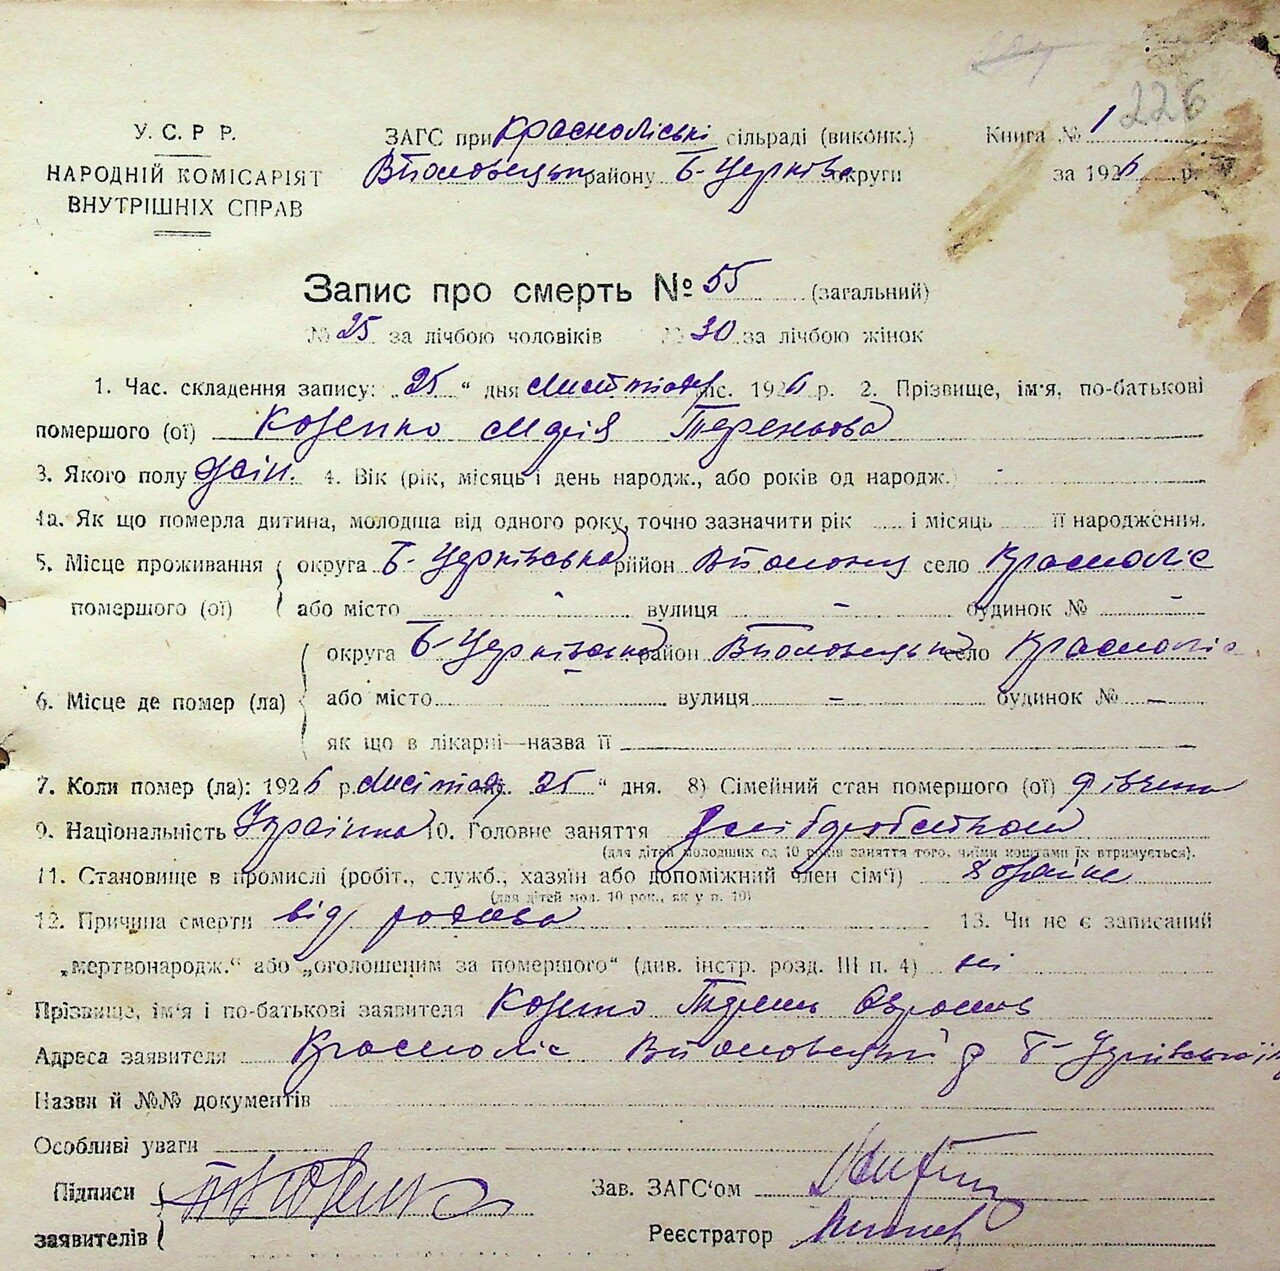 226
У. С. Р. Р.
НАРОДНІЙ КОМІСАРІЯТ
ВНУТРІШНІХ СПРАВ
ЗАГС при Красноліські сільраді (виконк.)
району Б-Церків округи
Книга № 1
за 1926 р.
Запис про смерть № 55 (загальний)
№ 25 за лічбою чоловіків № 30 за лічбою жінок
1. Час. складення запису: „25" дня міс. 1926 р. 2. Прізвище, ім'я, по-батькові
помершого (ої) Козенко Марія Тереньова
3. Якого полу жін. 4. Вік (рік, місяць і день народж., або років од народж.)
4а. Як що померла дитина, молодша від одного року, точно зазначити рік і місяць її народження.
5. Місце проживання помершого (ої) округа Б-Церківська район село Красноліс
або місто - вулиця - будинок № -
6. Місце де помер (ла) округа Б-Церківська район село Красноліс
або місто - вулиця - будинок № -
як що в лікарні—назва її
7. Коли помер (ла): 1926 р. 25 " дня. 8) Сімейний стан помершого (ої) дівчина
9. Національність Українка 10. Головне заняття
(для дітей молодших од 10 років заняття того, чиїми коштами їх втримується).
11. Становище в промислі (робіт., служб., хазяїн або допоміжний член сім'ї)
(для дітей мол. 10 рок., як у п. 10)
12. Причина смерти від 13. Чи не є записаний
„мертвонародж." або „оголошеним за помершого" (див. інстр. розд. III п. 4) ні
Прізвище, ім'я і по-батькові заявителя Козенко Терень
Адреса заявителя Красноліс р Б-Церківської
Назви й №№ документів
Особливі уваги
Підписи
заявителів
Зав. ЗАГС'ом
Реєстратор